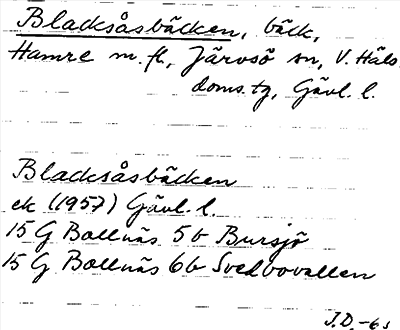 Blacksåsbäcken, bäck,
Hamre m.fl., Järvsö sn, V. Häls.
doms.tg, Gävl. l.
Blacksåsbäcken
ek (1957) Gävl. l.
15 G Bollnäs 5b Bursjö
15 G Bollnäs 6b Svedbovallen
J.D. -61